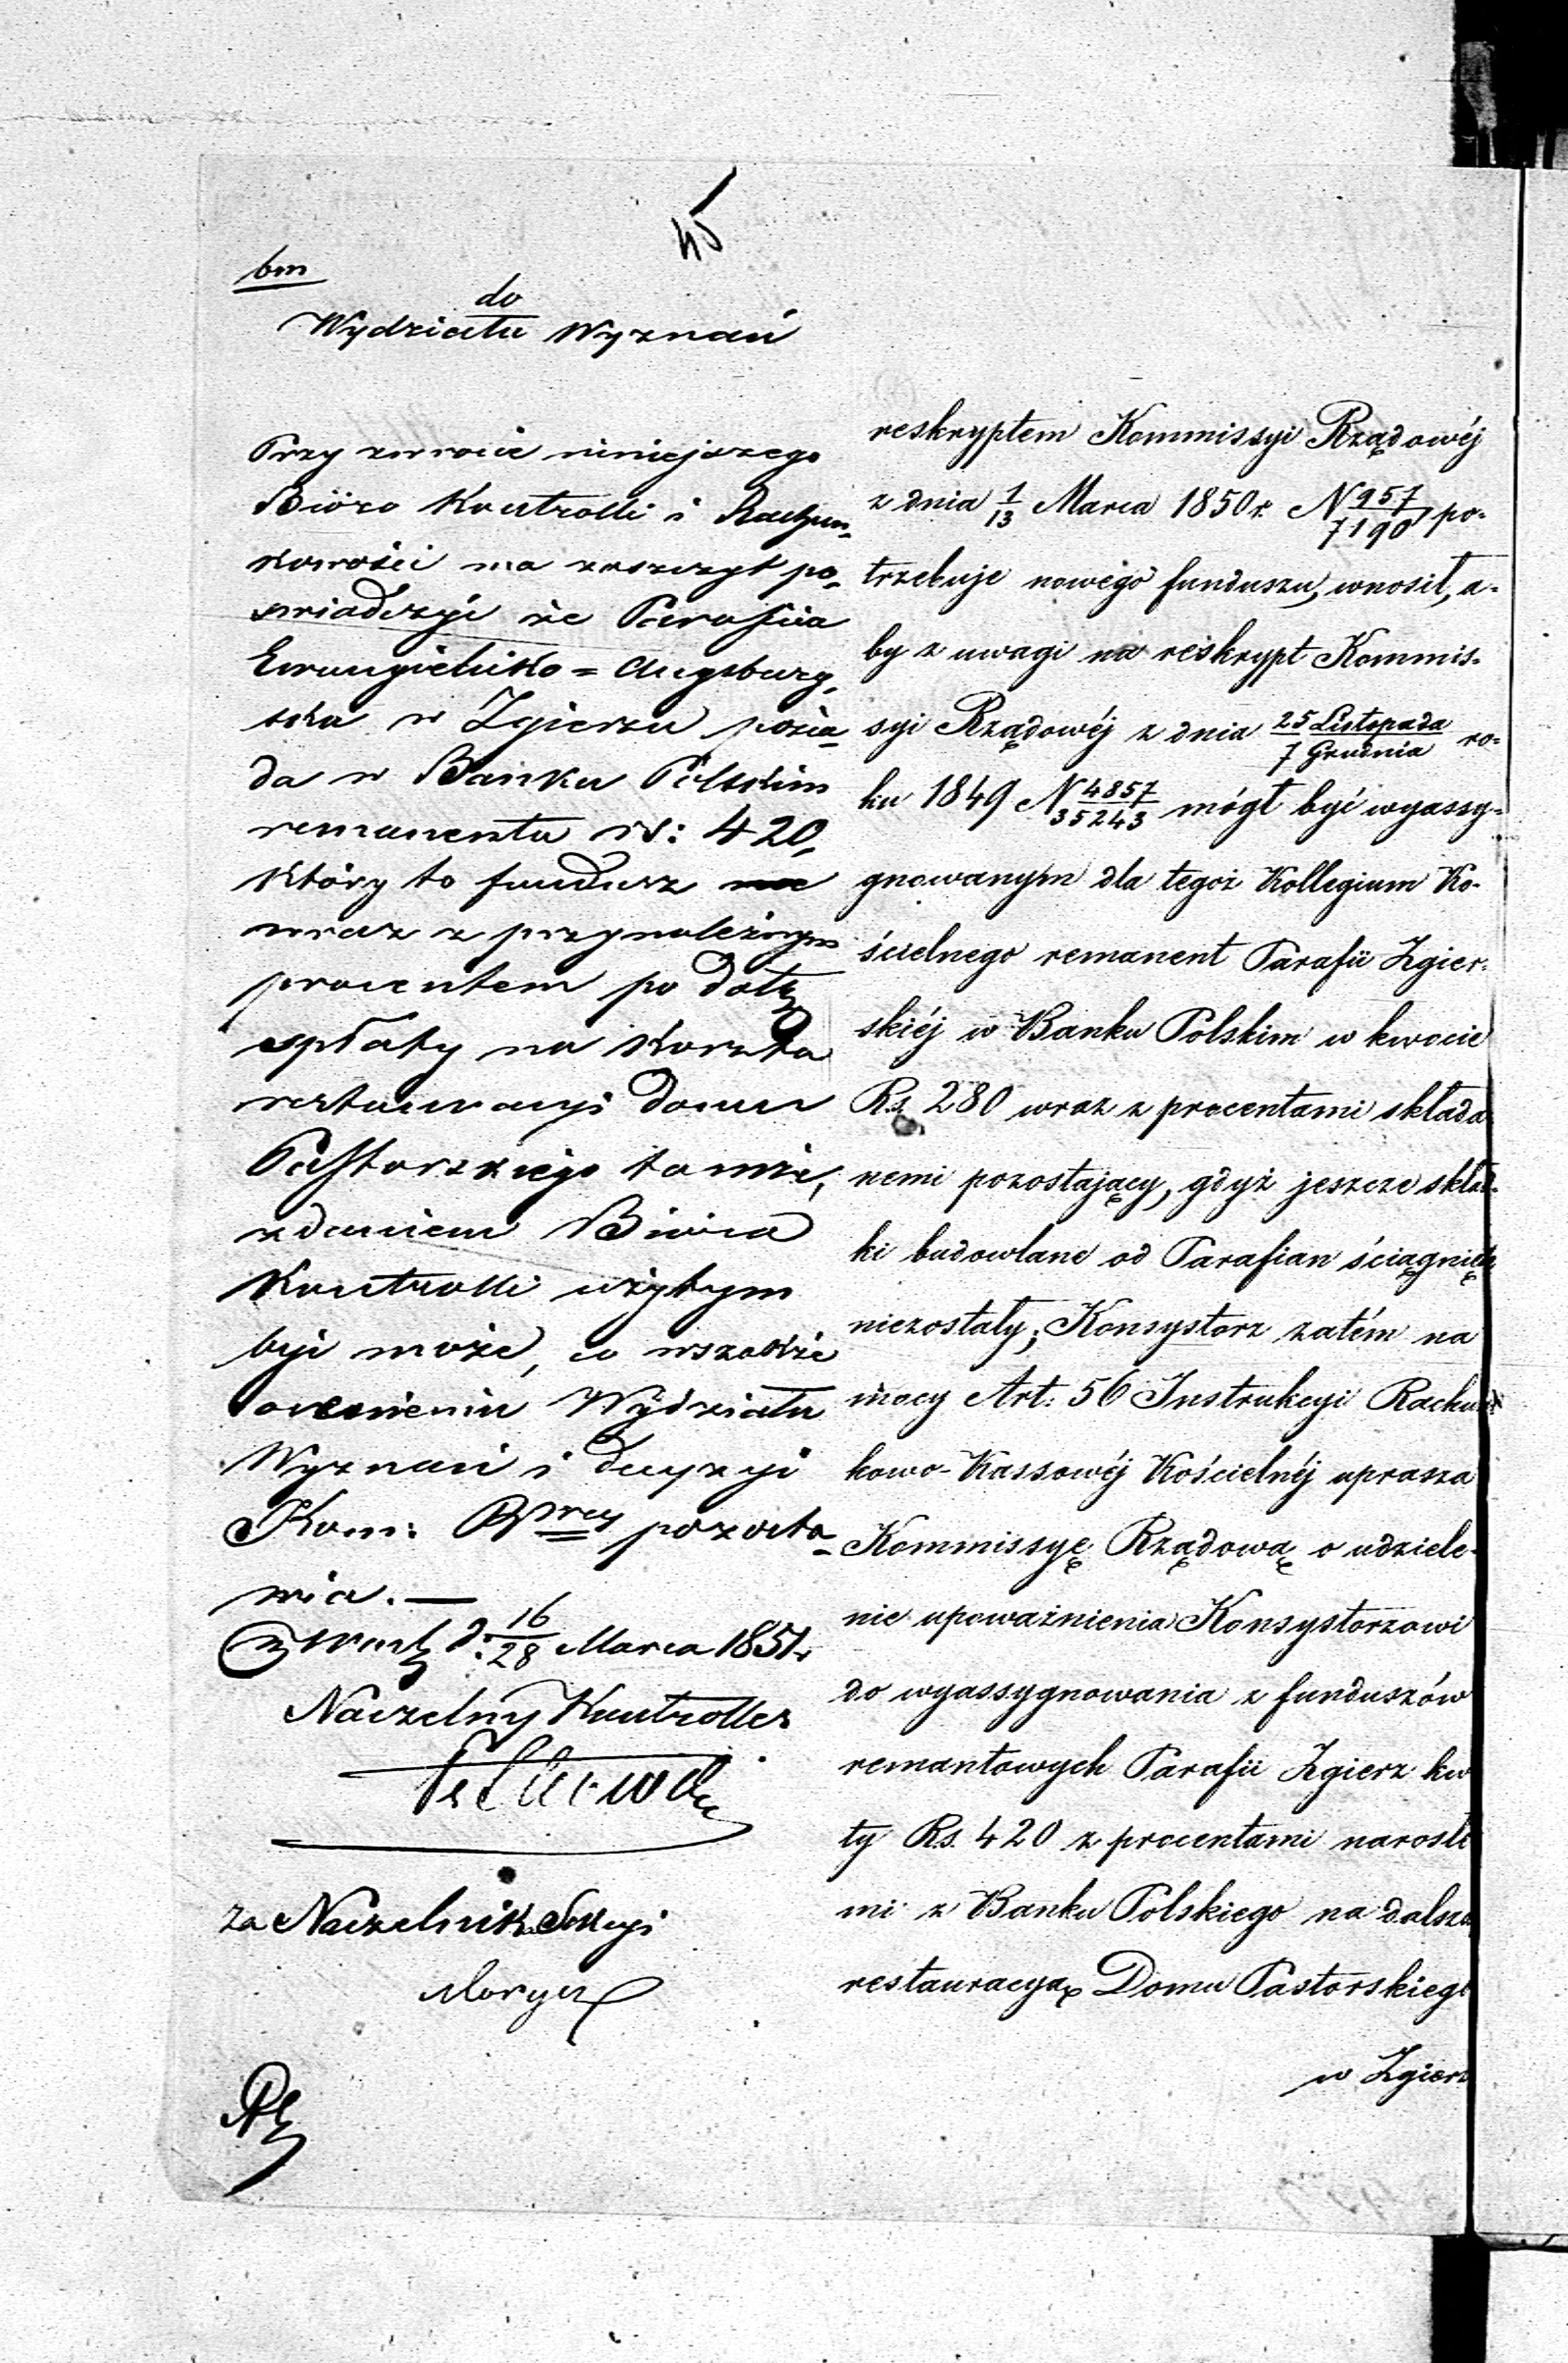 45
bm
do
Wydziału Wyznań
Przy zwrocie niniejszego
Bióro Kontrolli i Rachun-
kowości ma zaszczyt po-
świadczyć że Parafia
Ewangielicko = Augsburg-
ska w Zgierzu posia-
da w Banku Polskim
remanentu rs: 420,
który to fundusz
wraz z przynależnym
procentem po datę
spłaty na koszta
restauracyi domu
Pastorskiego tamże,
zdaniem Bióra
Kontrolli użytym
być może, co wszakże
ocenieniu Wydziału
Wyznań i decyzyi
Kom: Rzwey pozosta-
wia. —
w Warsz d: 16/28 Marca 1851 r
Naczelny Kontroller
za Naczelnika Sekcyi
reskryptem Kommissyi Rządowéj
z dnia 1/13 Marca 1850 r. N 957/7190 po-
trzebuje nowego funduszu, wnosił, a-
by z uwagi na reskrypt Kommis-
syi Rządowéj z dnia 25 Listopada/7 Grudnia ro-
ku 1849 N 4857/35243 mógł być wyassy-
gnowanym dla tegoż Kollegium Ko-
ścielnego remanent Parafii Zgier-
skiéj w Banku Polskim w kwocie
Rs. 280 wraz z procentami składa
nemi pozostający, gdyż jeszcze skład-
ki budowlane od Parafian ściągnięte
niezostały; Konsystorz zatém na
mocy Art: 56 Instrukcyi Rachun
kowo-Kassowéj Kościelnéj uprasza
Kommissyę Rządową o udziele-
nie upoważnienia Konsystorzowi
do wyassygnowania z funduszów
remantowych Parafii Zgierz kw
ty Rs. 420 z procentami narosł
mi z Banku Polskiego na dalszą
restauracyą Domu Pastorskiego
w Zgierz